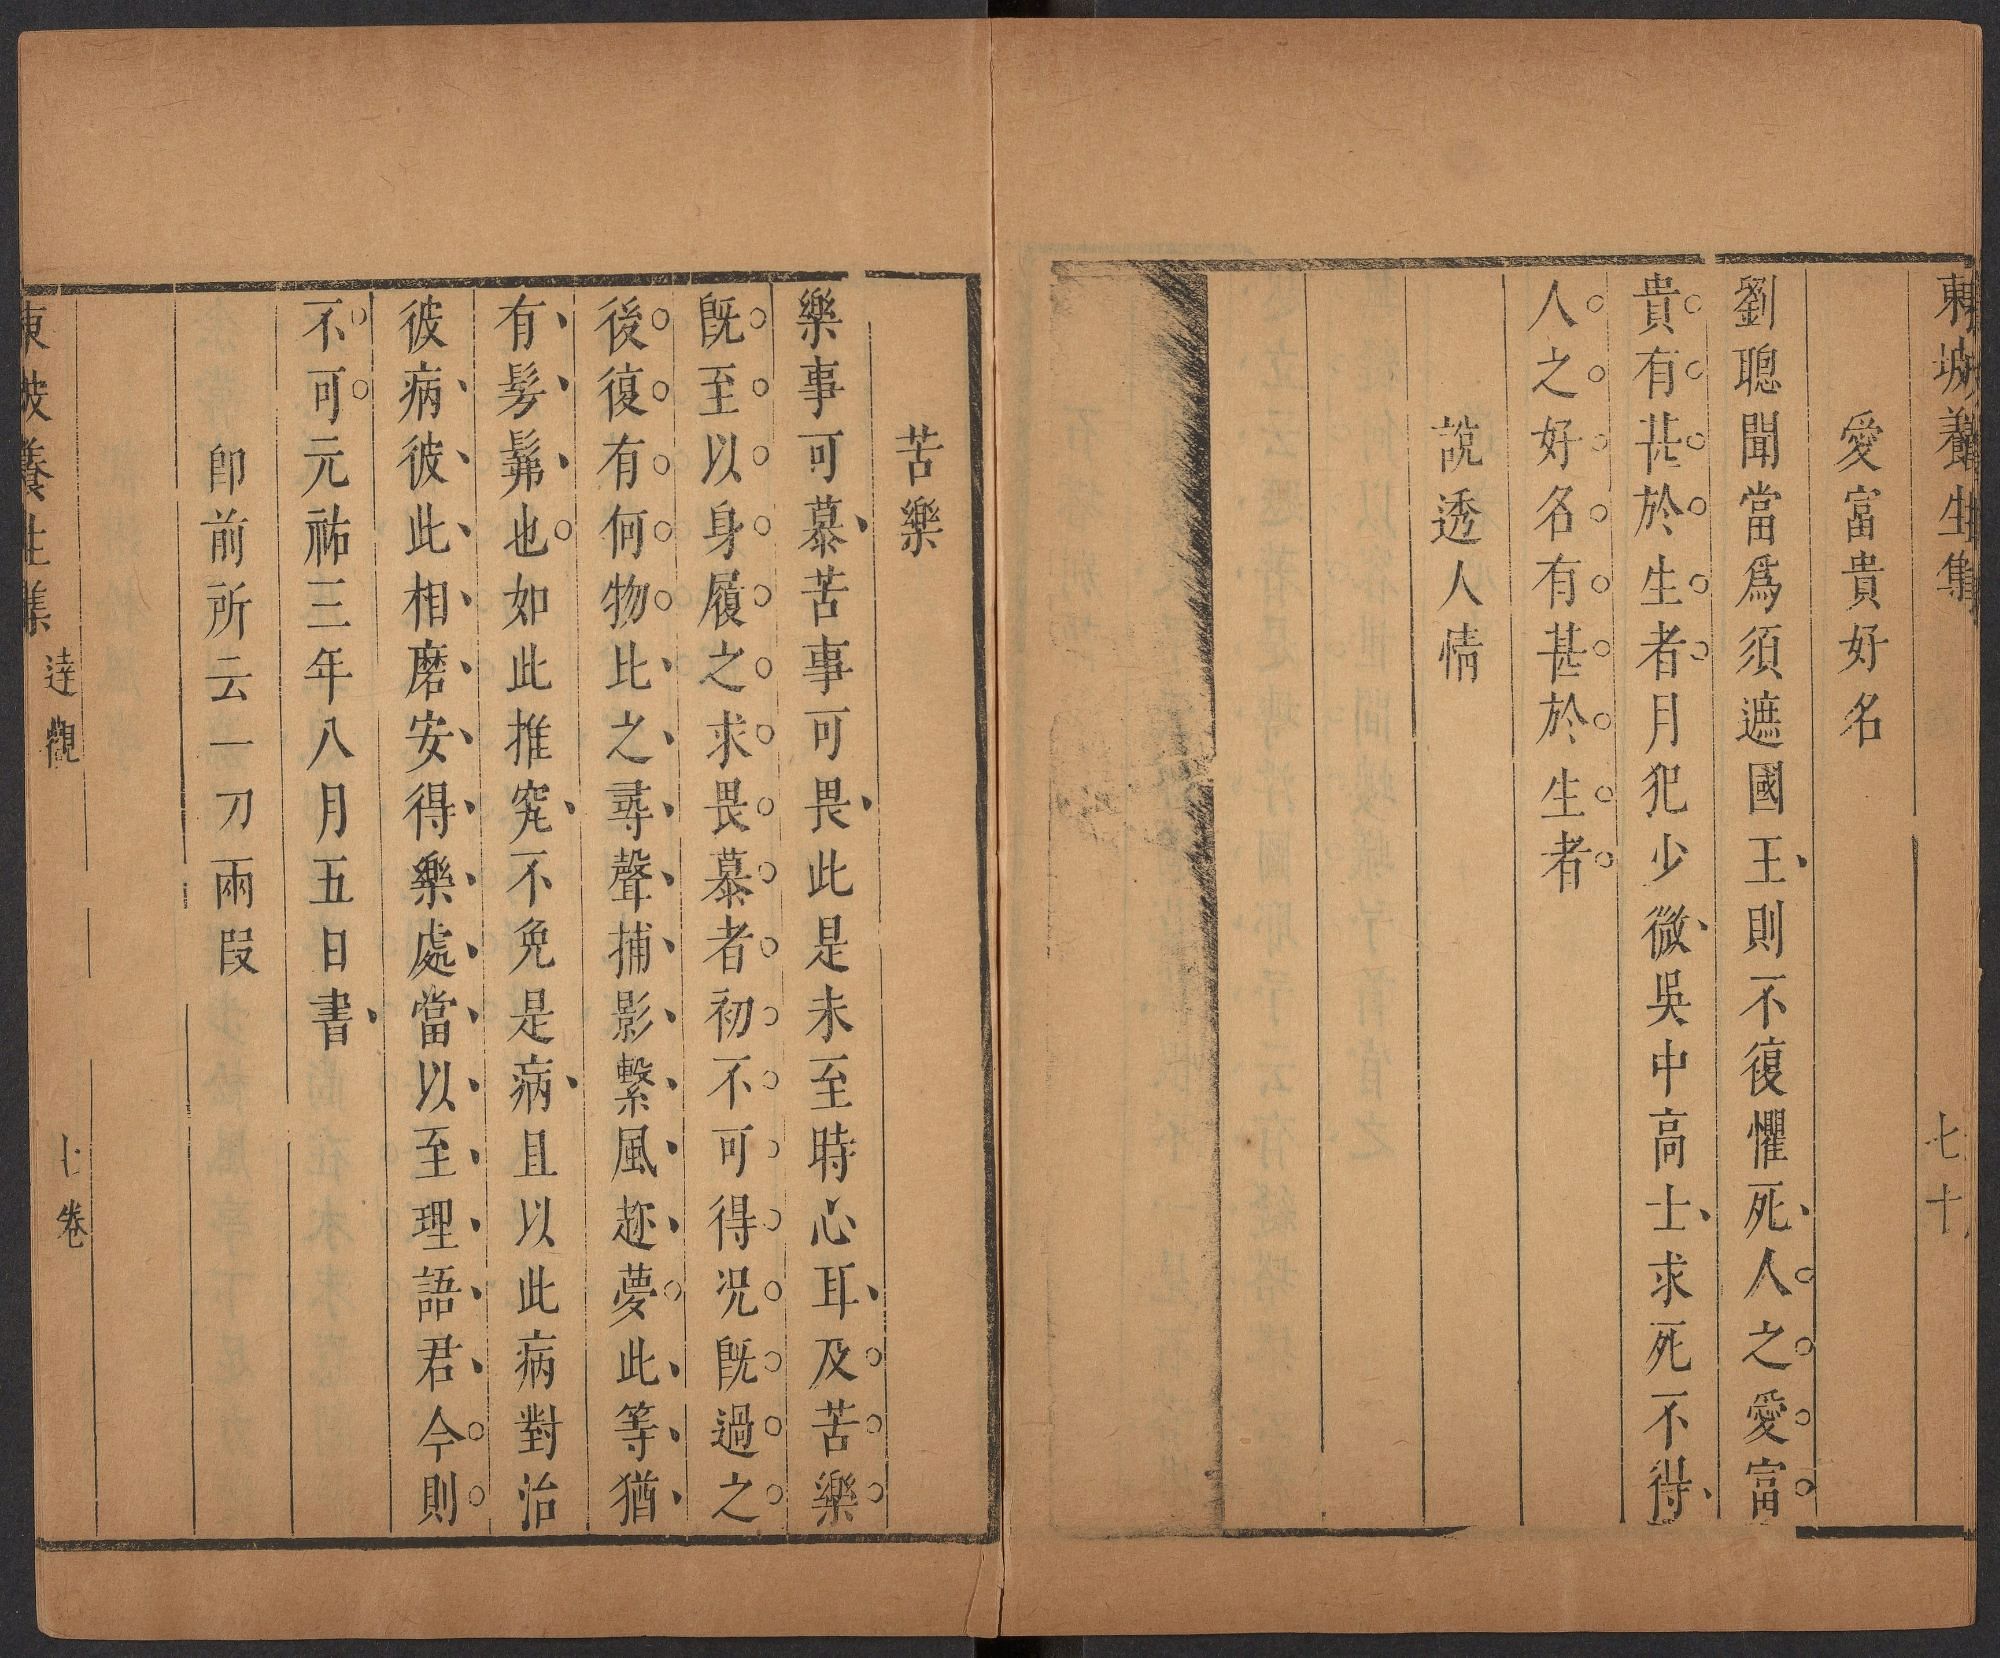 東坡養生集
七十
愛富貴好名
劉聰聞當爲須遮國王則不復懼死人之愛富
貴有甚於生者月犯少微吳中高士求死不得
人之好名有甚於生者
說透人情
苦樂
樂事可慕苦事可畏此是未至時心耳及苦樂
旣至以身履之求畏慕者初不可得况旣過之
後復有何物比之尋聲捕影繫風趂夢此等猶
有髣髴也如此推究不免是病且以此病對治
彼病彼此相磨安得樂處當以至理語君今則
不可元祐三年八月五日書
卽前所云一刀兩段
東坡養生集
達觀
七卷